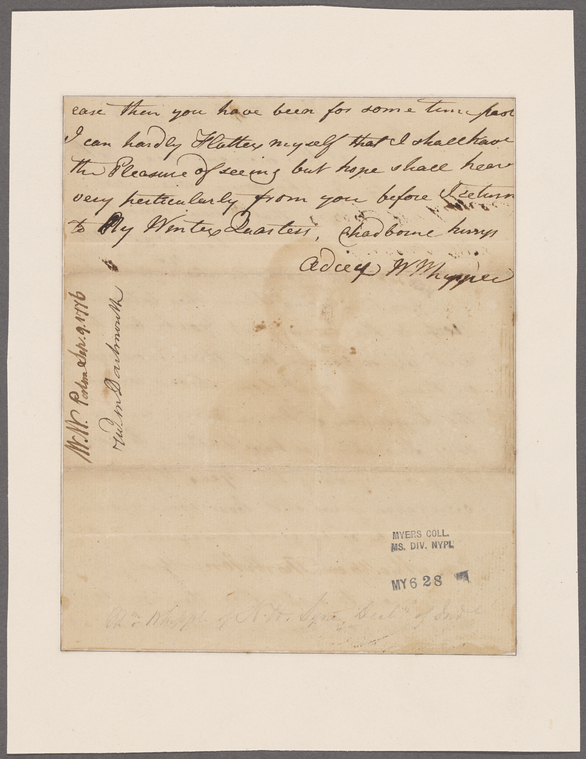 ease then you have been for some time past
I can hardly Flatter myself that I shall have
the Pleasure of seeing but hope shall hear
very perticularly from you before I return
to My Winter Quarters, Chadborne hurrys
Adieu Wm Whipple
W.W. Apr. 9. 1776
Dartmouth
MYERS COLL.
MS. DIV. NYPL
MY 628
Whipple of N.H. Signr. of Decl